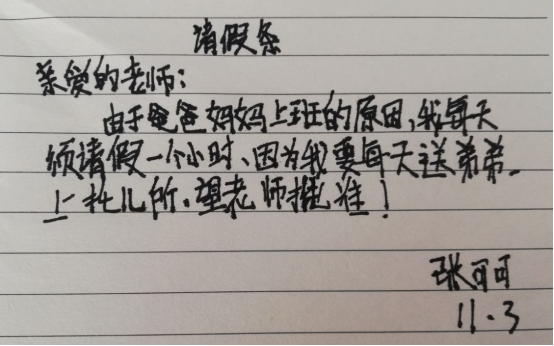 请假条
亲爱的老师:
由于爸爸妈妈上班的原因,我每天
须请假一个小时、因为我要每天送弟弟.
上托儿所.望老师批准!
张可可
11.3